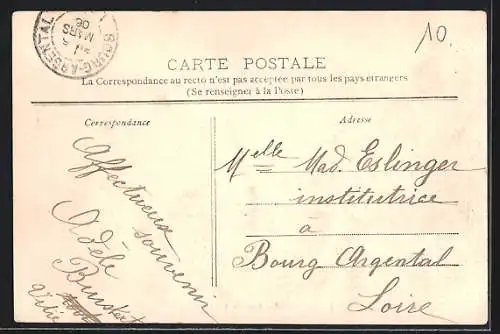 BOURG-ARGENTAL
MARS
06
10
CARTE POSTALE
La Correspondance au recto n'est pas acceptée par tous les pays étrangers
(Se renseigner à la Poste)
Correspondance
Affectueux
souvenir
Adèle
Adresse
Melle Mad. Eslinger
institutrice
à
Bourg Argental
Loire